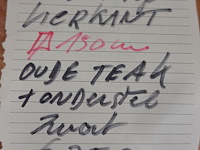 VIERKANT
150 cm
OUDE TEAK
+ ONDERSTEL
Zwart